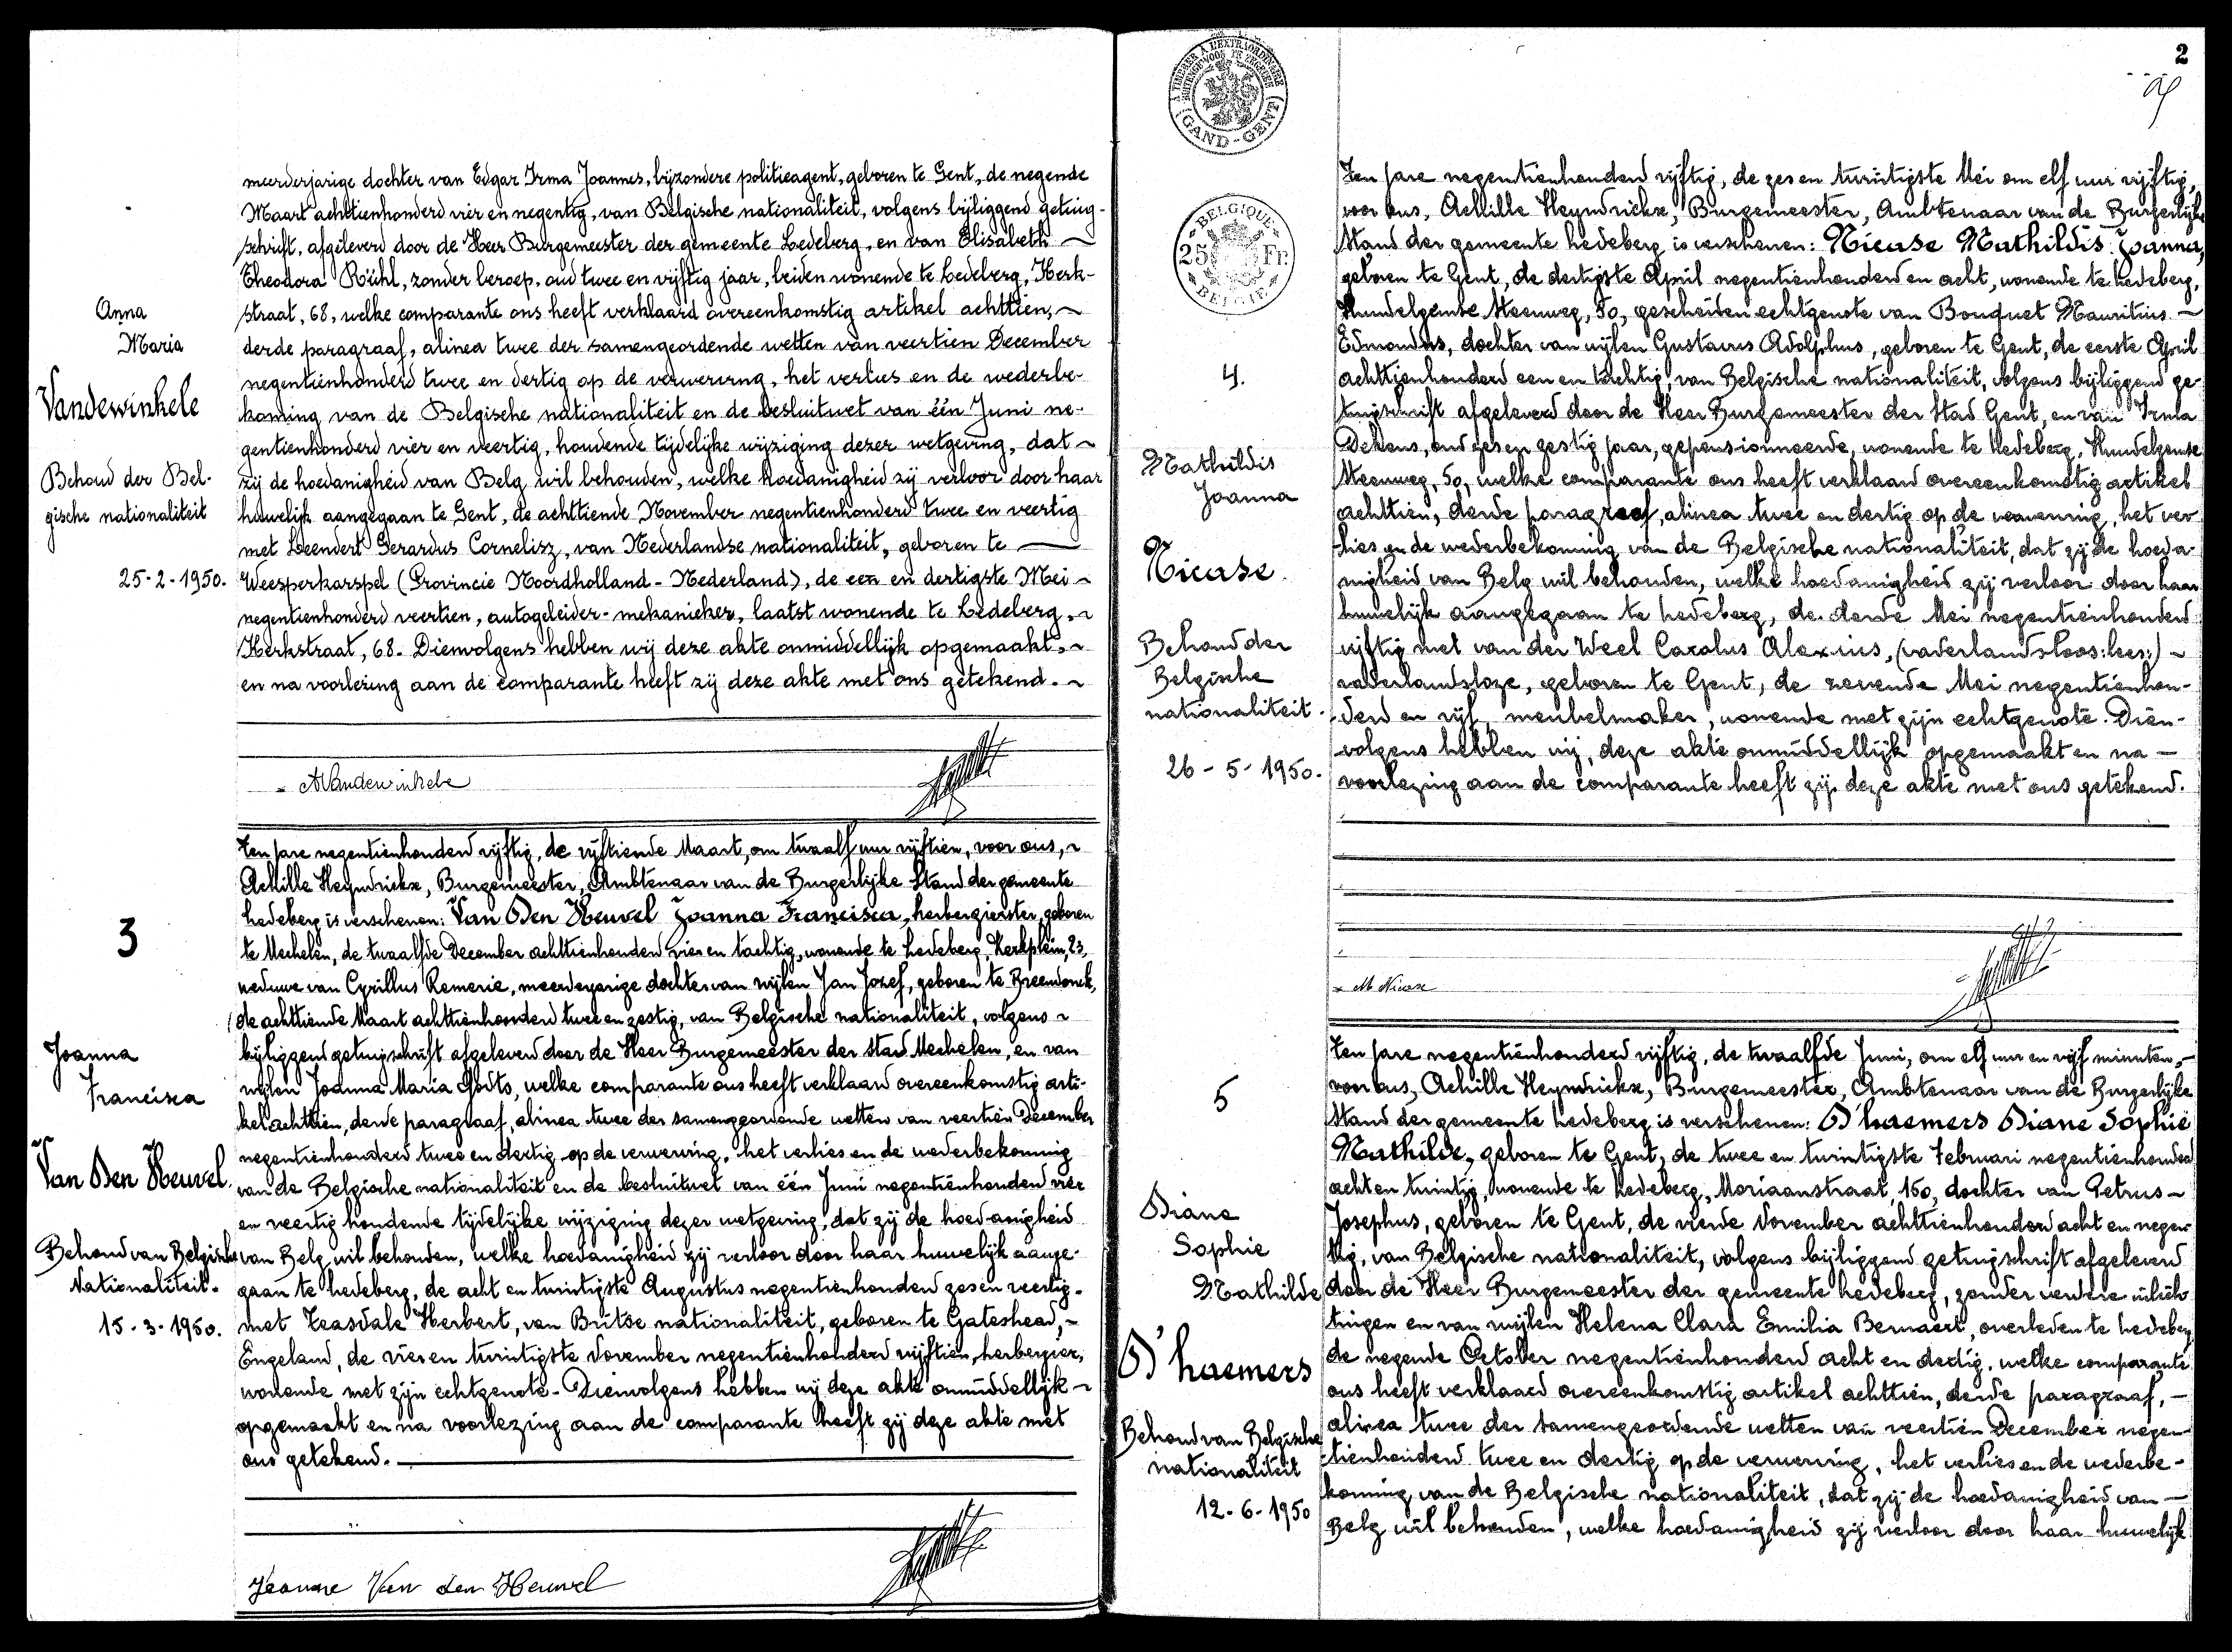 Anna
Maria
Vandewinkele
Behoud der Bel-
gische nationaliteit
25-2-1950.
meerderjarige dochter van Edgar Irma Joannes, bijzondere politieagent, geboren te Gent, de negende
Maart achttienhonderd vier en negentig, van Belgische nationaliteit, volgens bijliggend getuig-
schrift, afgeleverd door de Heer Burgemeester der gemeente Ledeberg, en van Elisabeth
Theodora Rühl, zonder beroep, oud twee en vijftig jaar, beiden wonende te Ledeberg, Kerk-
straat, 68, welke comparante ons heeft verklaard overeenkomstig artikel achttien,
derde paragraaf, alinea twee der samengeordende wetten van veertien December
negentienhonderd twee en dertig op de verwerving, het verlies en de wederbe-
koming van de Belgische nationaliteit en de besluitwet van één Juni ne-
gentienhonderd vier en veertig, houdende tijdelijke wijziging dezer wetgeving, dat
zij de hoedanigheid van Belg wil behouden, welke hoedanigheid zij verloor door haar
huwelijk aangegaan te Gent, de achttiende November negentienhonderd twee en veertig
met Leendert Gerardus Cornelisz, van Nederlandse nationaliteit, geboren te
Weesperkarspel (Provincie Noordholland - Nederland), de een en dertigste Mei
negentienhonderd veertien, autogeleider-mekanieker, laatst wonende te Ledeberg,
Kerkstraat, 68. Dienvolgens hebben wij deze akte onmiddellijk opgemaakt,
en na voorlezing aan de comparante heeft zij deze akte met ons getekend.
AVandewinkele
3
Joanna
Francisca
Van Den Heuvel.
Behoud van Belgische
Nationaliteit.
15-3-1950.
Ten jare negentienhonderd vijftig, de vijftiende Maart, om twaalf uur vijftien, voor ons,
Achille Heyndrickx, Burgemeester, Ambtenaar van de Burgerlijke Stand der gemeente
Ledeberg is verschenen: Van Den Heuvel Joanna Francisca, herbergierster, geboren
te Mechelen, de twaalfde December achttienhonderd vier en tachtig, wonende te Ledeberg, Kerkplein, 23,
weduwe van Cyrillus Remerie, meerderjarige dochter van wijlen Jan Jozef, geboren te Breendonck,
de achttiende Maart achttienhonderd twee en zestig, van Belgische nationaliteit, volgens
bijliggend getuigschrift afgeleverd door de Heer Burgemeester der stad Mechelen, en van
wijlen Joanna Maria Godts, welke comparante ons heeft verklaard overeenkomstig arti-
kel achttien, derde paragraaf, alinea twee der samengeordende wetten van veertien December
negentienhonderd twee en dertig op de verwerving, het verlies en de wederbekoming
van de Belgische nationaliteit en de besluitwet van één Juni negentienhonderd vier
en veertig houdende tijdelijke wijziging dezer wetgeving, dat zij de hoedanigheid
van Belg wil behouden, welke hoedanigheid zij verloor door haar huwelijk aange-
gaan te Ledeberg, de acht en twintigste Augustus negentienhonderd zes en veertig.
met Teasdale Herbert, van Britse nationaliteit, geboren te Gateshead,
Engeland, de vier en twintigste November negentienhonderd vijftien, herbergier,
wonende met zijn echtgenote. Dienvolgens hebben wij deze akte onmiddellijk
opgemaakt en na voorlezing aan de comparante heeft zij deze akte met
ons getekend.
Jeanne Van den Heuvel
2
A TIMBRER A L'EXTRAORDINAIRE
GAND-GENT
BELGIQUE
25 Fr.
BELGIE
4.
Mathildis
Joanna
Nicase.
Behoud der
Belgische
nationaliteit.
26-5-1950.
Ten jare negentienhonderd vijftig, de zes en twintigste Mei om elf uur vijftig,
voor ons, Achille Heyndrickx, Burgemeester, Ambtenaar van de Burgerlijke
Stand der gemeente Ledeberg is verschenen: Nicase Mathildis Joanna,
geboren te Gent, de dertigste April negentienhonderd en acht, wonende te Ledeberg,
Hundelgemse Steenweg, 50, gescheiden echtgenote van Bouquet Mauritius
Edmondus, dochter van wijlen Gustavus Adolphus, geboren te Gent, de eerste April
achttienhonderd een en tachtig, van Belgische nationaliteit, volgens bijliggend ge-
tuigschrift afgeleverd door de Heer Burgemeester der Stad Gent, en van Irma
oud zes en zestig jaar, gepensionneerde, wonende te Ledeberg, Hundelgemse
Steenweg, 50, welke comparante ons heeft verklaard overeenkomstig artikel
achttien, derde paragraaf, alinea twee en dertig op de verwerving, het ver
lies en de wederbekoming van de Belgische nationaliteit, dat zij de hoeda-
nigheid van Belg wil behouden, welke hoedanigheid zij verloor door haar
huwelijk aangegaan te Ledeberg, de derde Mei negentienhonderd
vijftig met van der Weel Carolus Alexius, (vaderlandsloos: lees:)
vaderlandsloze, geboren te Gent, de zevende Mei negentienhon-
derd en vijf, meubelmaker, wonende met zijn echtgenote. Dien-
volgens hebben wij, deze akte onmiddellijk opgemaakt en na
voorlezing aan de comparante heeft zij deze akte met ons getekend.
M Nicase
5
Diane
Sophie
Mathilde
D'haemers
Behoud van Belgische
nationaliteit
12-6-1950
Ten jare negentienhonderd vijftig, de twaalfde Juni, om elf uur en vijf minuten,
voor ons, Achille Heyndrickx, Burgemeester, Ambtenaar van de Burgerlijke
Stand der gemeente Ledeberg is verschenen: D'haemers Diane Sophie
Mathilde, geboren te Gent, de twee en twintigste Februari negentienhonderd
acht en twintig, wonende te Ledeberg, Moriaanstraat, 150, dochter van Petrus
Josephus, geboren te Gent, de vierde November achttienhonderd acht en negen
tig, van Belgische nationaliteit, volgens bijliggend getuigschrift afgeleverd
door de Heer Burgemeester der gemeente Ledeberg, zonder verdere inlich
tingen en van wijlen Helena Clara Emilia Bernaert, overleden te Ledeberg,
de negende October negentienhonderd acht en dertig, welke comparante
ons heeft verklaard overeenkomstig artikel achttien, derde paragraaf,
alinea twee der samengeordende wetten van veertien December negen-
tienhonderd twee en dertig op de verwerving, het verlies en de wederbe-
koming van de Belgische nationaliteit, dat zij de hoedanigheid van
Belg wil behouden, welke hoedanigheid zij verloor door haar huwelijk